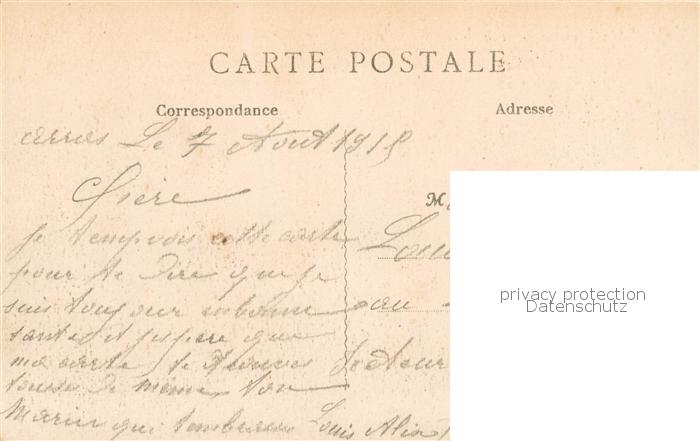 CARTE POSTALE
Correspondance
Adresse
Le 7 Aout 1915
Chère
Je temp vois cette carte
pour te dire que je
suis toujour
sante et jespere que
ma carte te trouves
de meme ton
Marie qui Louis
M
Loui
au
Secteur
privacy protection
Datenschutz